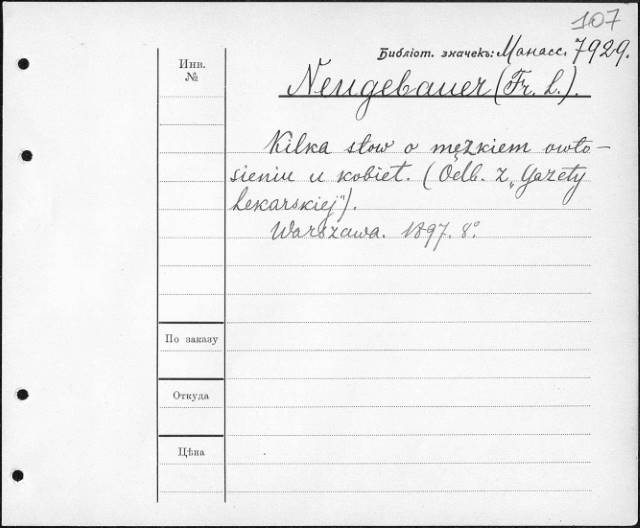 107
Библіот. значекъ: Манасс. 7929.
Инв.
№
Neugebauer (Fr. L.).
Kilka słow o męzkiem owło-
sieniu u kobiet. (Odb. z „Gazety
Lekarskiej”).
Warszawa. 1897. 8°.
По заказу
Откуда
Цѣна